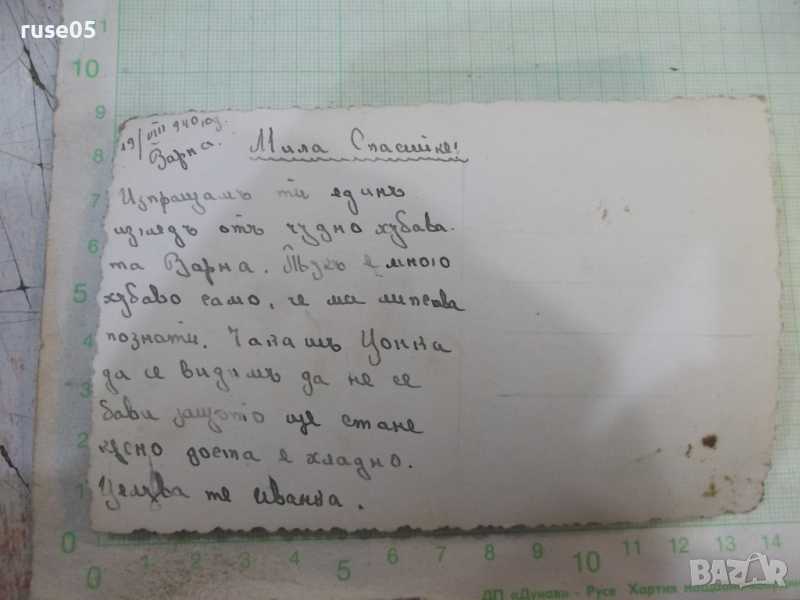 ruse05
19/VIII 940 год.
Варна.
Мила Спасийке!
Изпращамъ ти единъ
изгледъ отъ чудно хубава-
та Варна. Тукъ е много
хубаво само, че ма липсва
познати. Чакамъ Цонка
да се видимъ да не се
бави защото ще стане
късно доста е хладно.
Целува те Иванка.
11
10
9
8
7
6
5
4
3
2
1
0
0 1 2 3 4 5 6 7 8 9 10 11 12 13 14
ДП «Дунав» - Русе Хартия
BAZAR